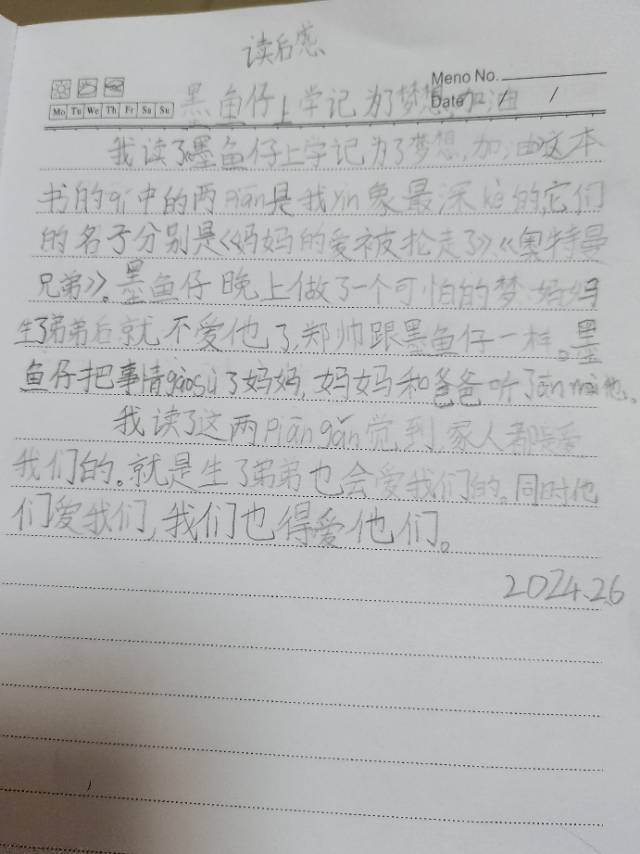 读后感
Meno No.
Mo Tu We Th Fr Sa Su
Date / /
墨鱼仔上学记为了梦想,加油
我读了墨鱼仔上学记为了梦想,加油这本
书的qí中的两piān是我yìn象最深kè的,它们
的名子分别是《妈妈的爱被抢走了》《奥特曼
兄弟》。墨鱼仔晚上做了一个可怕的梦妈妈
生了弟弟后就不爱他了,郑帅跟墨鱼仔一样。墨
鱼仔把事情gàosù了妈妈,妈妈和爸爸听了ān wèi他。
我读了这两piān gǎn觉到,家人都是爱
我们的。就是生了弟弟也会爱我们的。同时他
们爱我们,我们也得爱他们。
2024.2.6